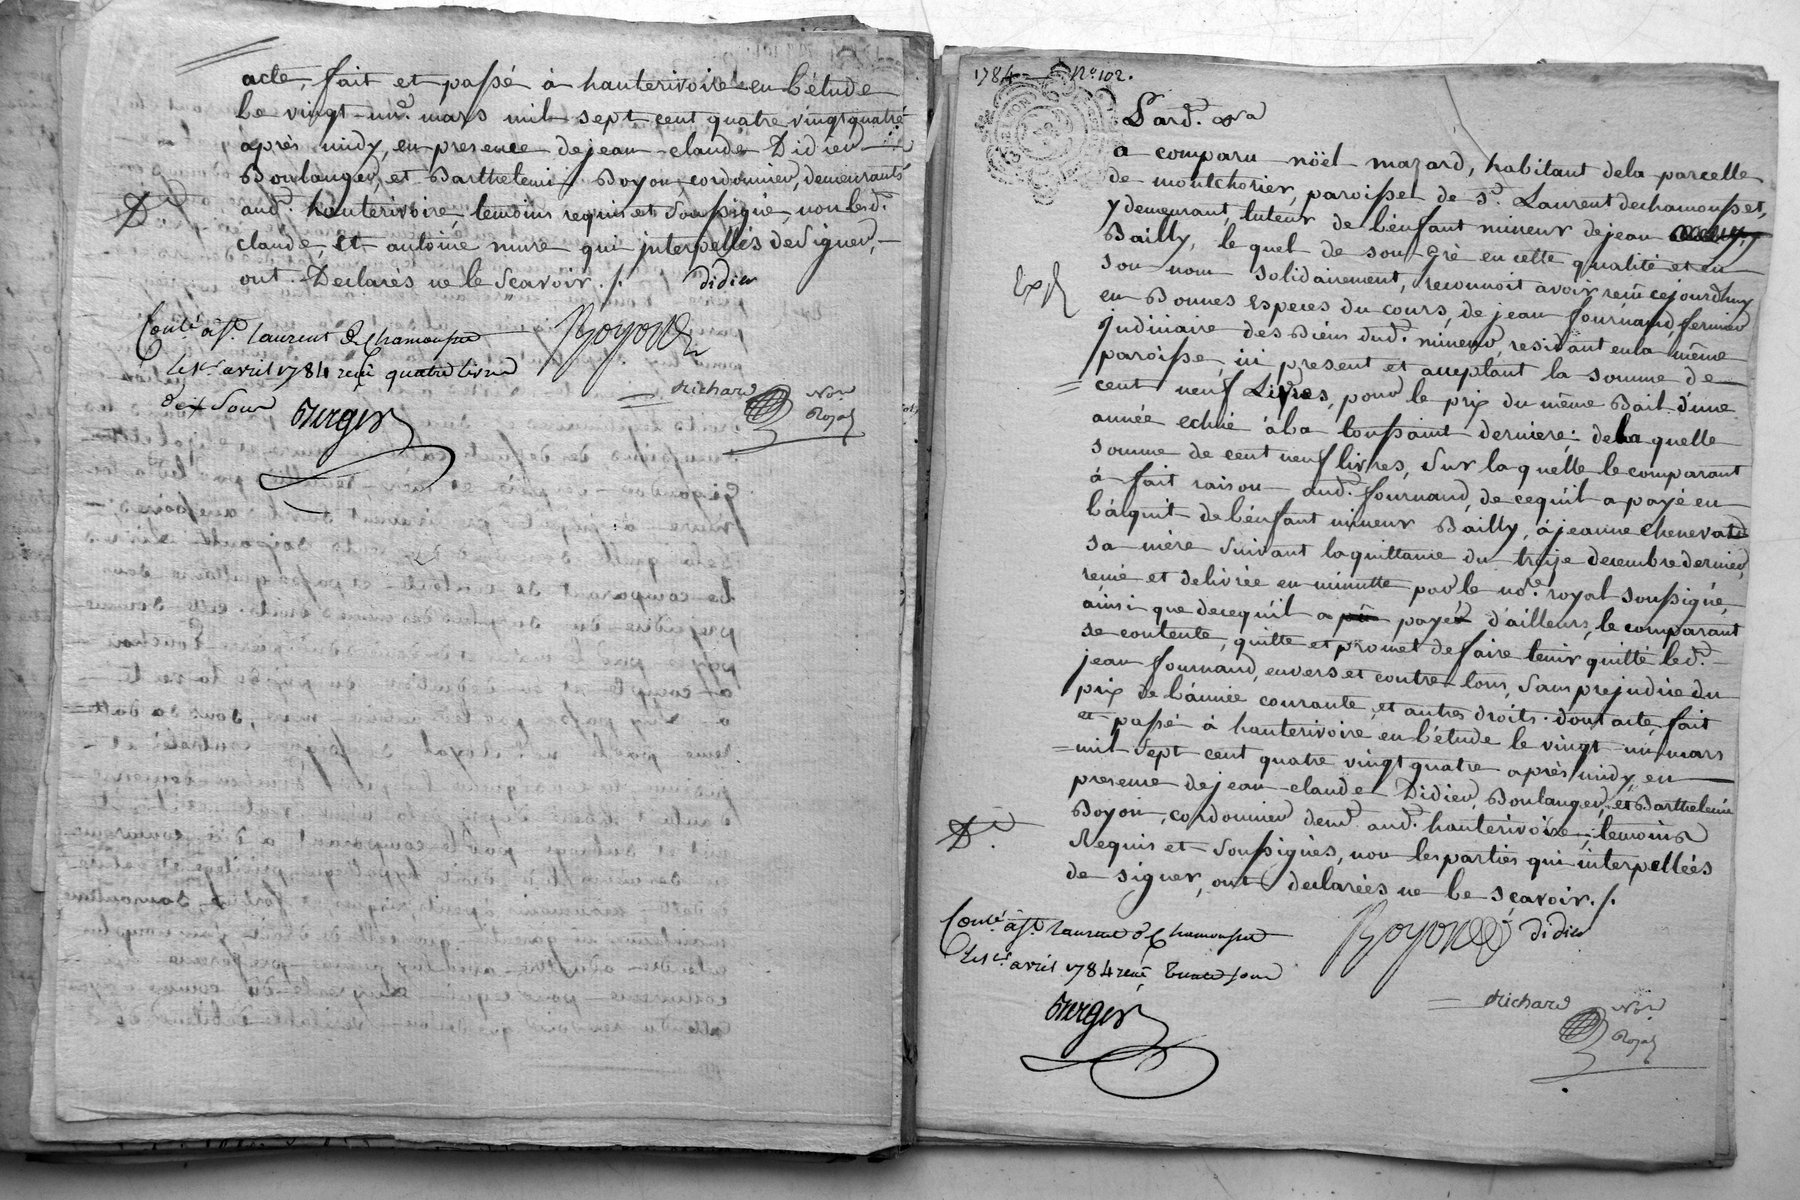 acte, fait et passé à hauterivoire en l'étude
le vingt-un mars mil sept cent quatre vingt quatre
après midy, en presence de jean-claude Didier
Boulanger, et Barthelemi Boyon, cordonnier, demeurants
aud. hauterivoire temoins requis et soussignés, non lesd.
claude, et antoine mure qui interpellés de signer,
ont Declarés ne le scavoir ./. didier
Boyon
Conlé à St. laurent de Chamousset
le 1er avril 1784 reçu quatre livres
dix sous
Berger
Richard Nore
Royal
1784 No. 102.
Pard. 
a comparu nöel mazard, habitant de la parcelle
de montchorier, paroisse de St. Laurent dechamousset,
y demeurant, tuteur de l'enfant mineur de jean
Bailly, lequel de son gré en cette qualité et en
son nom solidairement, reconnoit avoir reçu cejourd'huy
Exp
en Bonnes Especes du cours, de jean fournand, fermier
judiciaire des Biens dud. mineur, residant en la même
paroisse, ici present et acceptant la somme de
cent neuf Livres, pour le prix du même Bail d'une
année echue à la toussaint derniere; de la quelle
somme de cent neuf livres, sur la quelle le comparant
à fait raison aud. fournand, de cequ'il a payé en
l'acquit de l'enfant mineur Bailly, à jeanne Chenevat
sa mère suivant la quittance du treize decembre dernier,
reçue et delivrée en minutte par le no.re royal soussigné,
ainsi que de cequ'il a payé d'ailleurs, le comparant
se contente, quitte et promet de faire tenir quitte led.
jean fournand, envers et contre tous, sans prejudice du
prix de l'année courante, et autres droits. dont acte, fait
et passé à hauterivoire en l'étude le vingt-un mars
mil sept cent quatre vingt quatre après midy, en
presence de jean-claude Didier, Boulanger, et Barthelemi
Boyon, cordonnier demt. aud. hauterivoire, temoins
Requis et soussignés, non les parties qui interpellées
de signer, ont declarées ne le scavoir ./.
Boyon didier
Conlé à St. laurent de Chamousset
le 1er avril 1784 reçu sous
Berger
Richard Nore
Royal